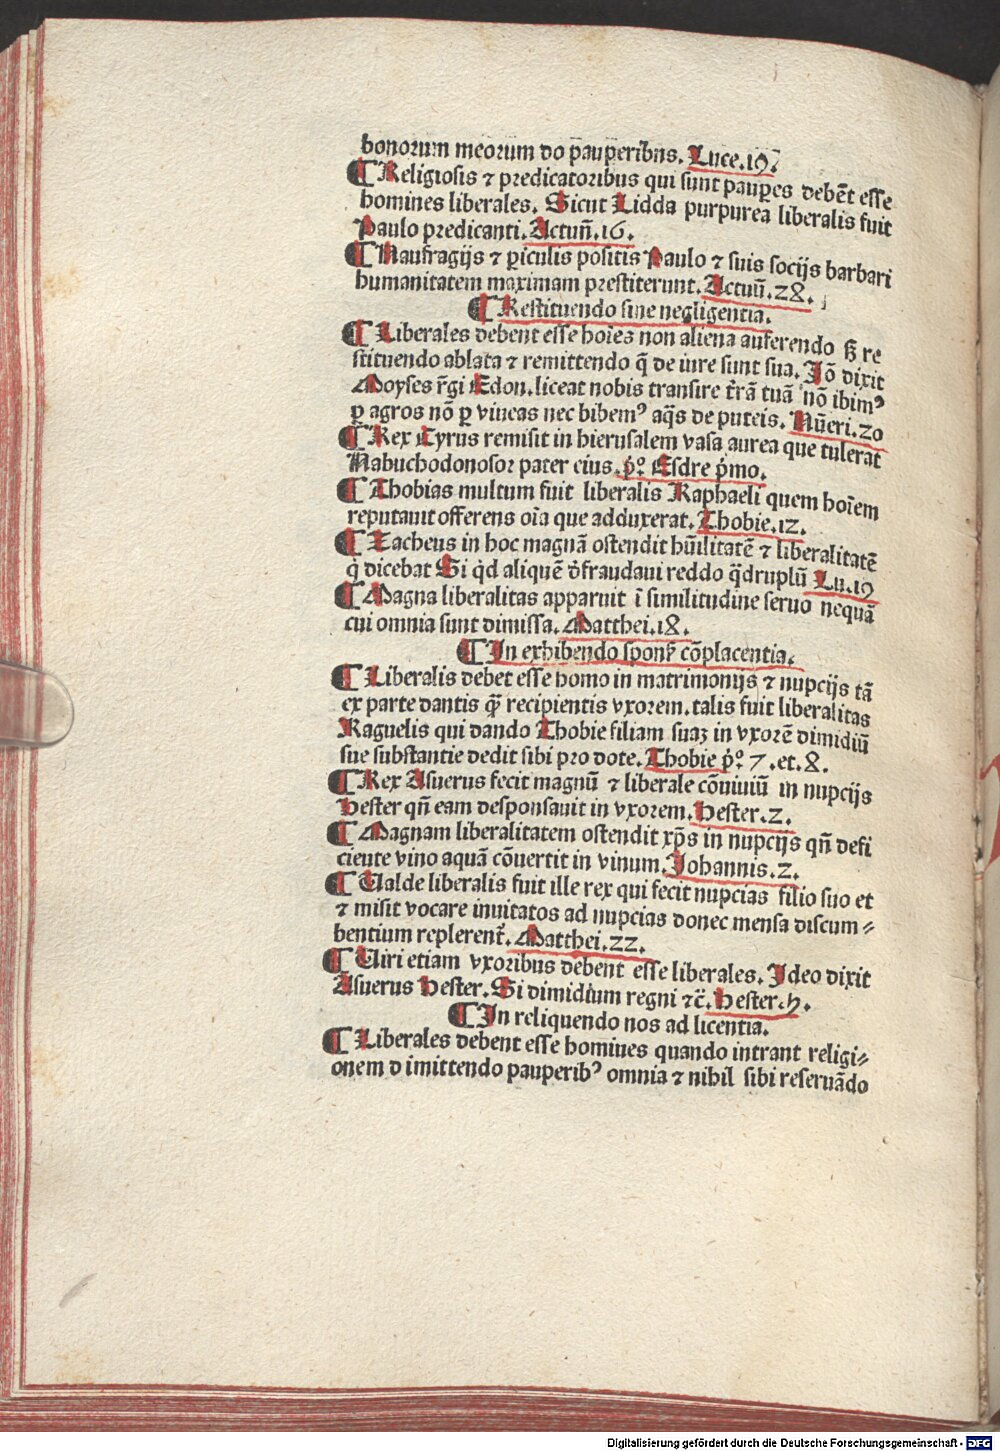 bonorum meorum do p̄auper̄ibus. Luce.19.
¶ Religiosis ⁊ predicatoribus qui sunt paup̱es debēt esse
homines liberales. Sicut Lidda purpurea liberalis fuit
Paulo predicanti. Actuū.16.
¶ Naufragijs ⁊ ꝑiculis positis Paulo ⁊ suis socijs barbari
humanitatem maximam prestiterunt. Actuū.28.
¶ Restituendo sine negligentia.
¶ Liberales debent esse hoīes non aliena auferendo sꝫ re
stituendo ablata ⁊ remittendo q̄ de iure sunt sua. Iō dixit
Moyses r̄gi Edon. liceat nobis transire t̄rā tuā nō ibimꝰ
ꝑ agros nō ꝑ vineas nec bibemꝰ aq̄s de puteis. Nūeri.20
¶ Rex Cyrus remisit in hierusalem vasa aurea que tulerat
Nabuchodonosor pater eius. p̄º. Esdre p̄mo.
¶ Thobias multum fuit liberalis Raphaeli quem hoīem
reputauit offerens oīa que adduxerat. Thobie.12.
¶ Zacheus in hoc magnā ostendit hūilitatē ⁊ liberalitatē
q̇ dicebat Si q̇d aliquē d̄fraudaui reddo q̄druplū Lu.19
¶ Magna liberalitas apparuit ī similitudine seruo nequā
cui omnia sunt dimissa. Matthei.18.
¶ In exhibendo spons̄ cōplacentia.
¶ Liberalis debet esse homo in matrimonijs ⁊ nupcijs tā
ex parte dantis q̄ȝ recipientis vxorem. talis fuit liberalitas
Raguelis qui dando Thobie filiam suaȝ in vxorē dimidiū
sue substantie dedit sibi pro dote. Thobie p̄º. 7. et.8.
¶ Rex Asuerus fecit magnū ⁊ liberale cōuiuiū in nupcijs
Hester qn̄ eam desponsauit in vxorem. Hester.2.
¶ Magnam liberalitatem ostendit xp̄s in nupcijs qn̄ defi
ciente vino aquā cōuertit in vinum. Johannis.2.
¶ Ualde liberalis fuit ille rex qui fecit nupcias filio suo et
⁊ misit vocare inuitatos ad nupcias donec mensa discum⸗
bentium replerent᷑. Matthei.22.
¶ Uiri etiam vxoribus debent esse liberales. Ideo dixit
Asuerus Hester. Si dimidium regni ⁊c̄. Hester.5.
¶ In reliquendo nos ad licentia.
¶ Liberales debent esse homiues quando intrant religi⸗
onem d imittendo pauperibꝰ omnia ⁊ nihil sibi reseruādo
Digitalisierung gefördert durch die Deutsche Forschungsgemeinschaft - DFG